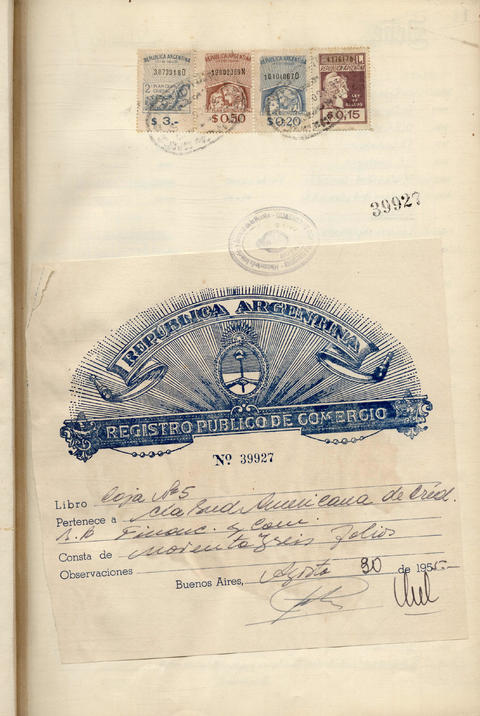 REPUBLICA ARGENTINA REPUBLICA ARGENTINA REPUBLICA ARGENTINA
$ 3.- $ 0,50 $ 0,20 $ 0,15
39927
REPUBLICA ARGENTINA
REGISTRO PUBLICO DE COMERCIO
Nº 39927
Libro Caja Nº 5
Pertenece a Cia Sud Americana de Créd.
Financ. y Com.
Consta de folios
Observaciones
Buenos Aires, Agosto 30 de 1955.-